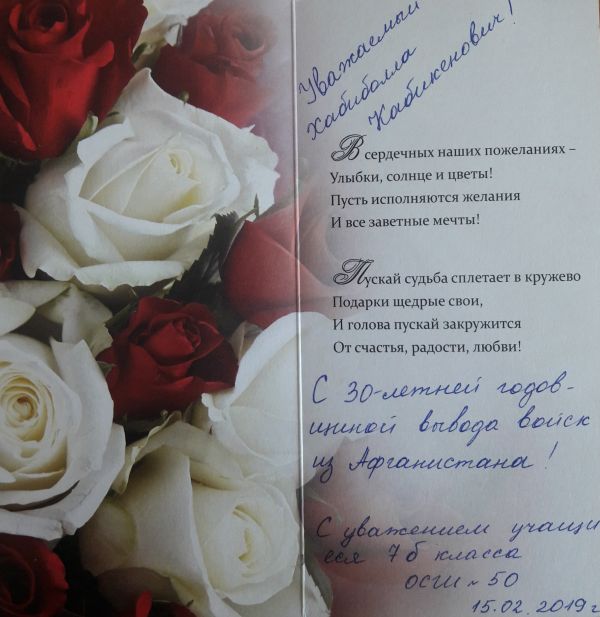 Уважаемый
Хабиболла
Кабикенович!
В сердечных наших пожеланиях –
Улыбки, солнце и цветы!
Пусть исполняются желания
И все заветные мечты!
Пускай судьба сплетает в кружево
Подарки щедрые свои,
И голова пускай закружится
От счастья, радости, любви!
С 30-летней годов-
щиной вывода войск
из Афганистана!
С уважением учащи
еся 7б класса
ОСШ № 50
15.02.2019 г